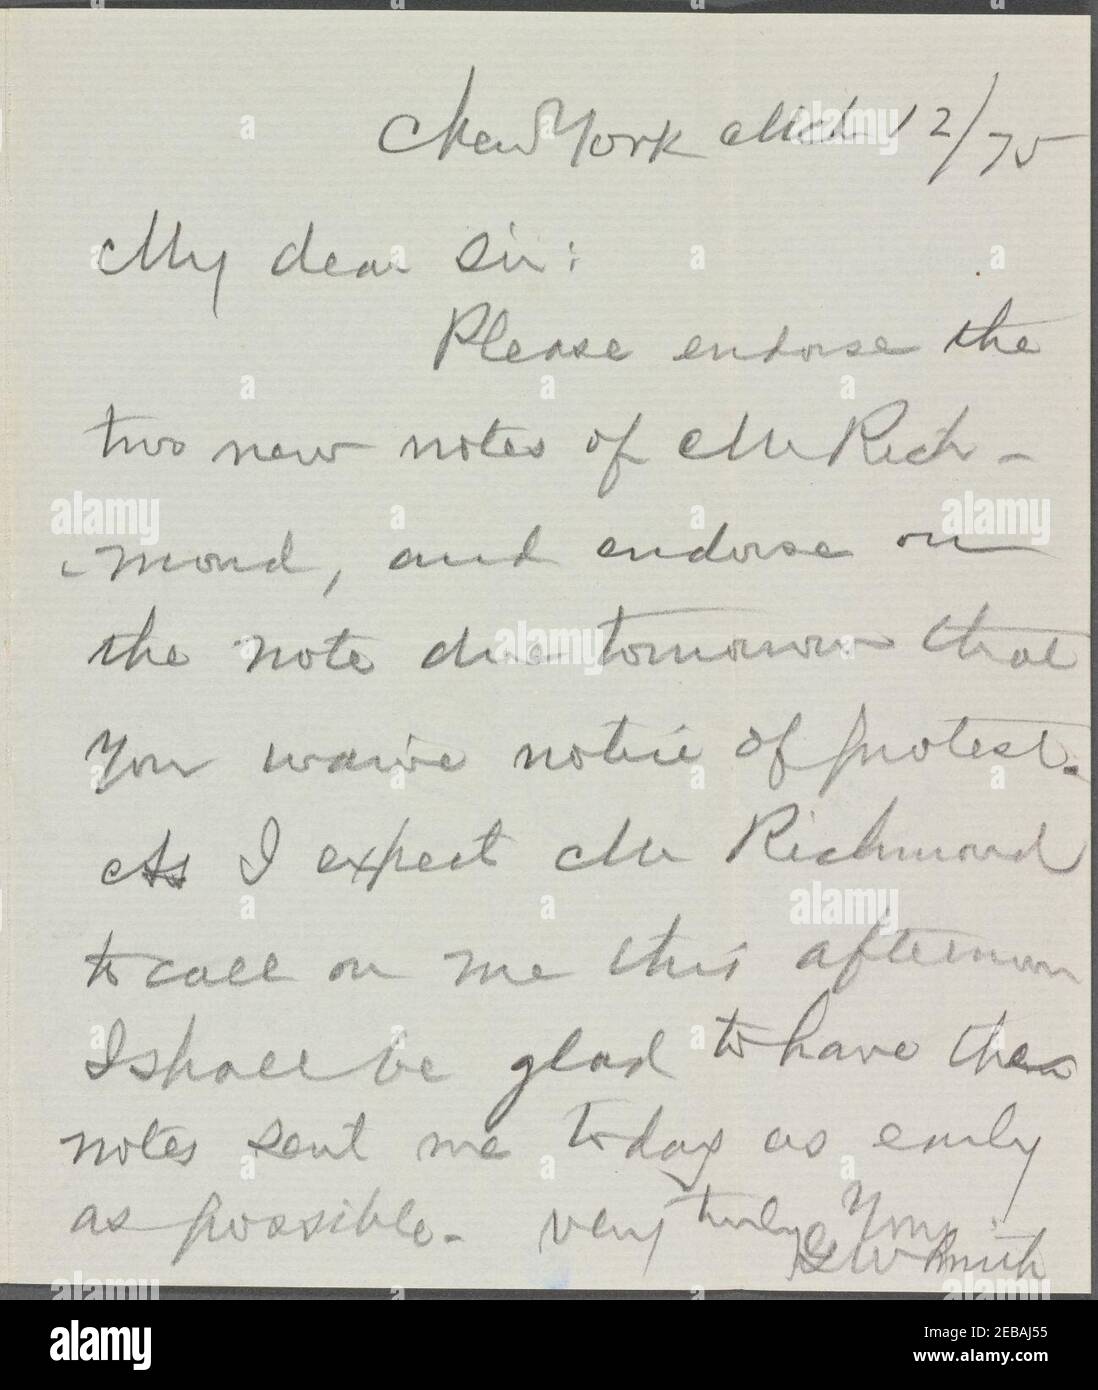 New York Mch 12/75
My dear Sir:
Please endorse the
two new notes of Mr Rich-
mond, and endorse on
the note due tomorrow that
You waive notice of protest.
As I expect Mr Richmond
to call on me this afternoon
I shall be glad to have the
notes sent me today as early
as possible. Very truly Yours
G W Smith
alamy
Image ID: 2EBAJ55
www.alamy.com